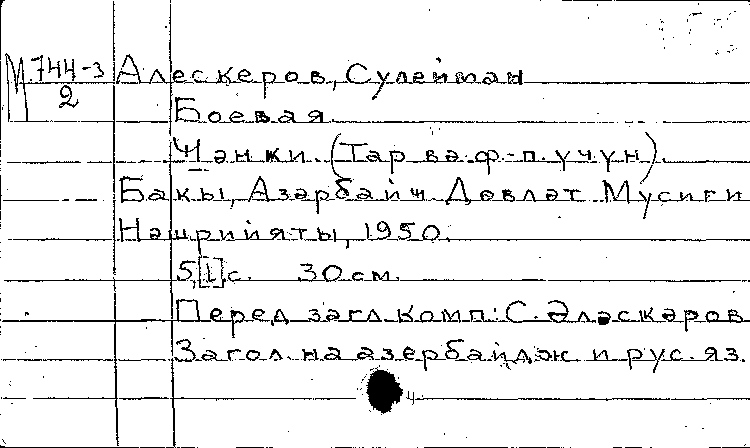 М 744-3 Алескеров, Сулейман
2 Боевая
Ҹәнки. (Тар вә ф-п. үчүн).
Бакы, Азәрбайҹ. Дөвләт Мусиги
Нәшрийяты, 1950.
5,[1]с. 30 см.
Перед загл. комп: С. Әләскәров
Загол. на азербайдж и рус. яз.